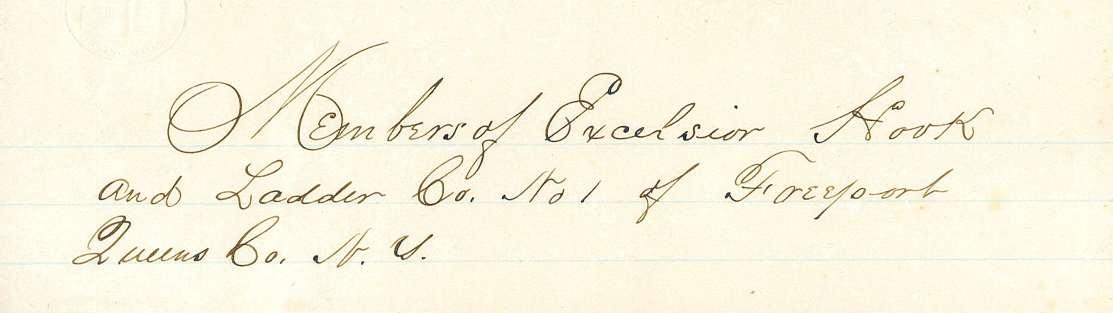 Members of Excelsior Hook
and Ladder Co. No 1 of Freeport
Queens Co. N. Y.